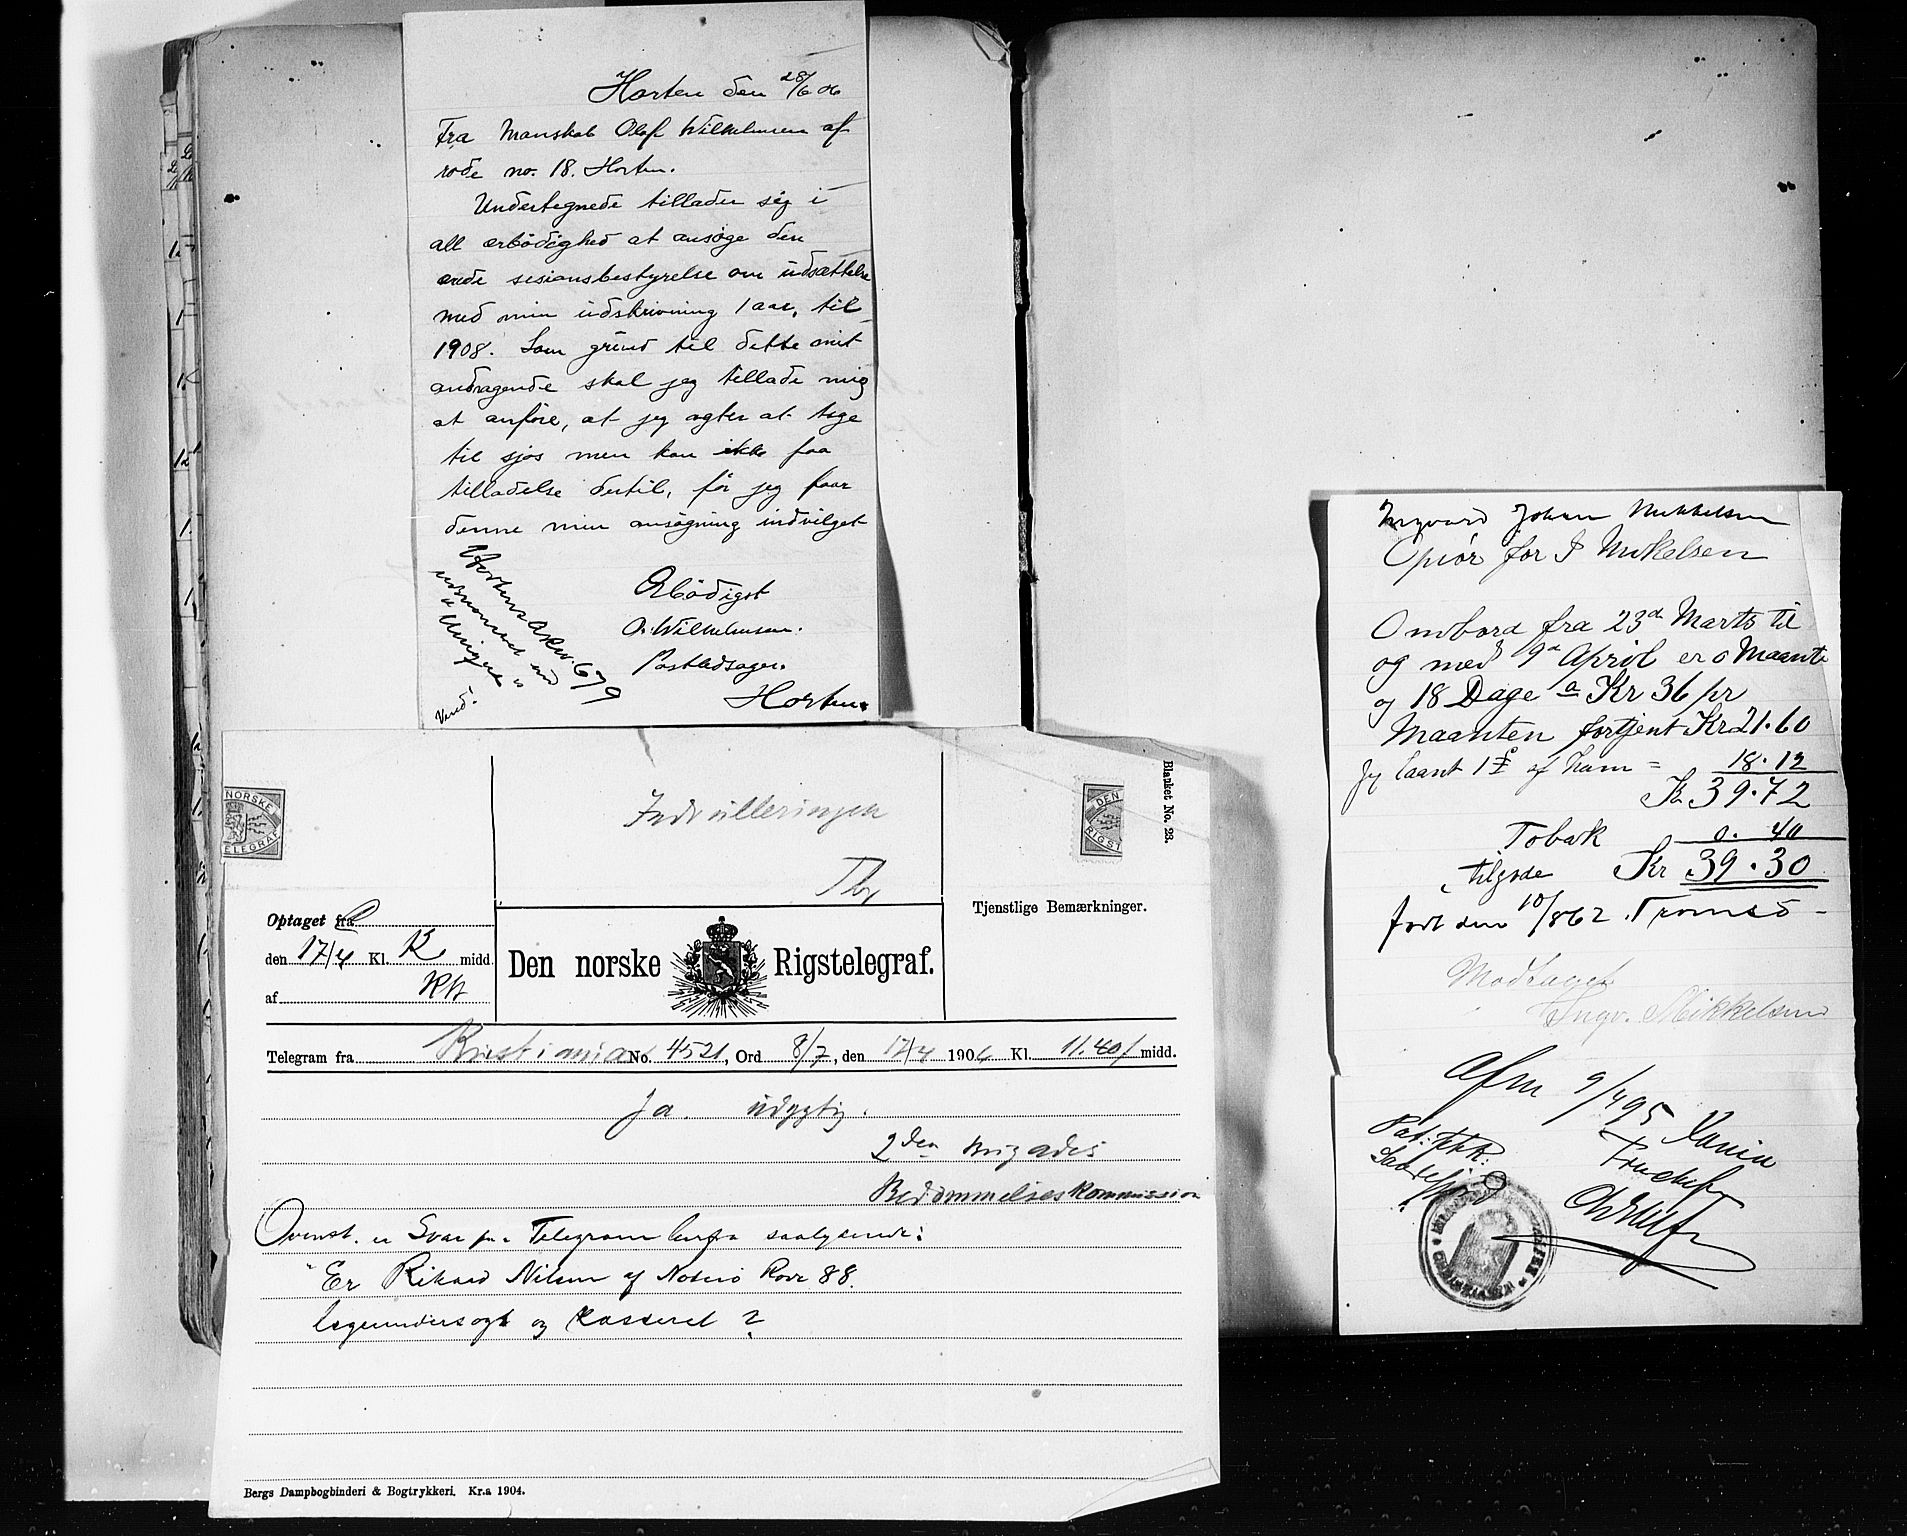 Horten den 28/6 06
Fra Manskab Olaf Wilhelmsen af
rode no. 18. Horten.
Undertegnede tillader sig i
all ærbödighed at ansøge den
ærede sesionsbestyrelse om udsættelse
med min udskrivning 1 aar, til
1908. Som grund til dette mit
andragende skal jeg tillade mig
at anføre, at jeg agter at tage
til sjøs men kan ikke faa
tilladelse dertil, før jeg faar
denne min ansøgning indvilget
Ærbödigst
O. Wilhelmsen.
Postadsager.
Horten.
679
Vend.
Indrulleringen
Blanket No. 23.
NORSKE
TELEGRAF
DEN
RIGST
Optaget fra
den 17/4 Kl. K midd.
af
Tjenstlige Bemærkninger.
Den norske Rigstelegraf.
Telegram fra Kristiania No. 4521, Ord 8/7, den 17/4 1906 Kl. 11.40 f midd.
Ja. udygtig.
2den Brigades
Bedømmelseskommission
Ovenst. er Svar paa Telegram herfra saalydende:
"Er Rikard Nilsen af Noterö Rode 88.
lægeundersøgt og kasseret?
Bergs Dampbogbinderi & Bogtrykkeri. Kr.a 1904.
Ingvard Johan Mikkelsen
Opiør for I Mikelsen
Ombord fra 23de Marts til
og med 9de April er 0 Maante
og 18 Dage a Kr 36 pr
Maanten fortjent Kr 21.60
Jeg laant 1 £ af ham = 18.12
Kr 39.72
Tobak 0.40
tilgode Kr 39.30
født den 10/ 862. Tromsö -
Modtaget
Ingv. Mikkelsen
Afm 9/4 95